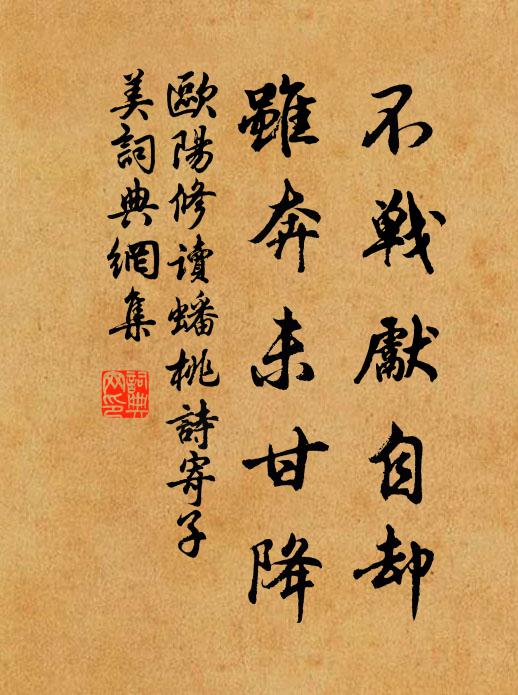 不戰獻自却
雖奔未甘降
歐陽修讀蟠桃詩寄子
美詞典網集
詞典
网印